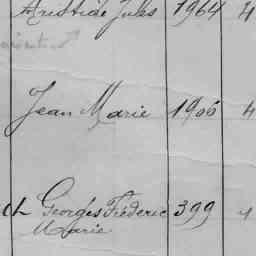 Aristide Jules 1964 4
Jean Marie 1906 4
ch Georges Fréderic 399 4
Marie